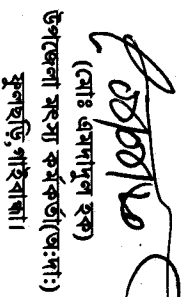 (মোঃ এমদাদুল হক)
উপজেলা মৎস্য কর্মকর্তা(অঃদাঃ)
ফুলছড়ি, গাইবান্ধা।